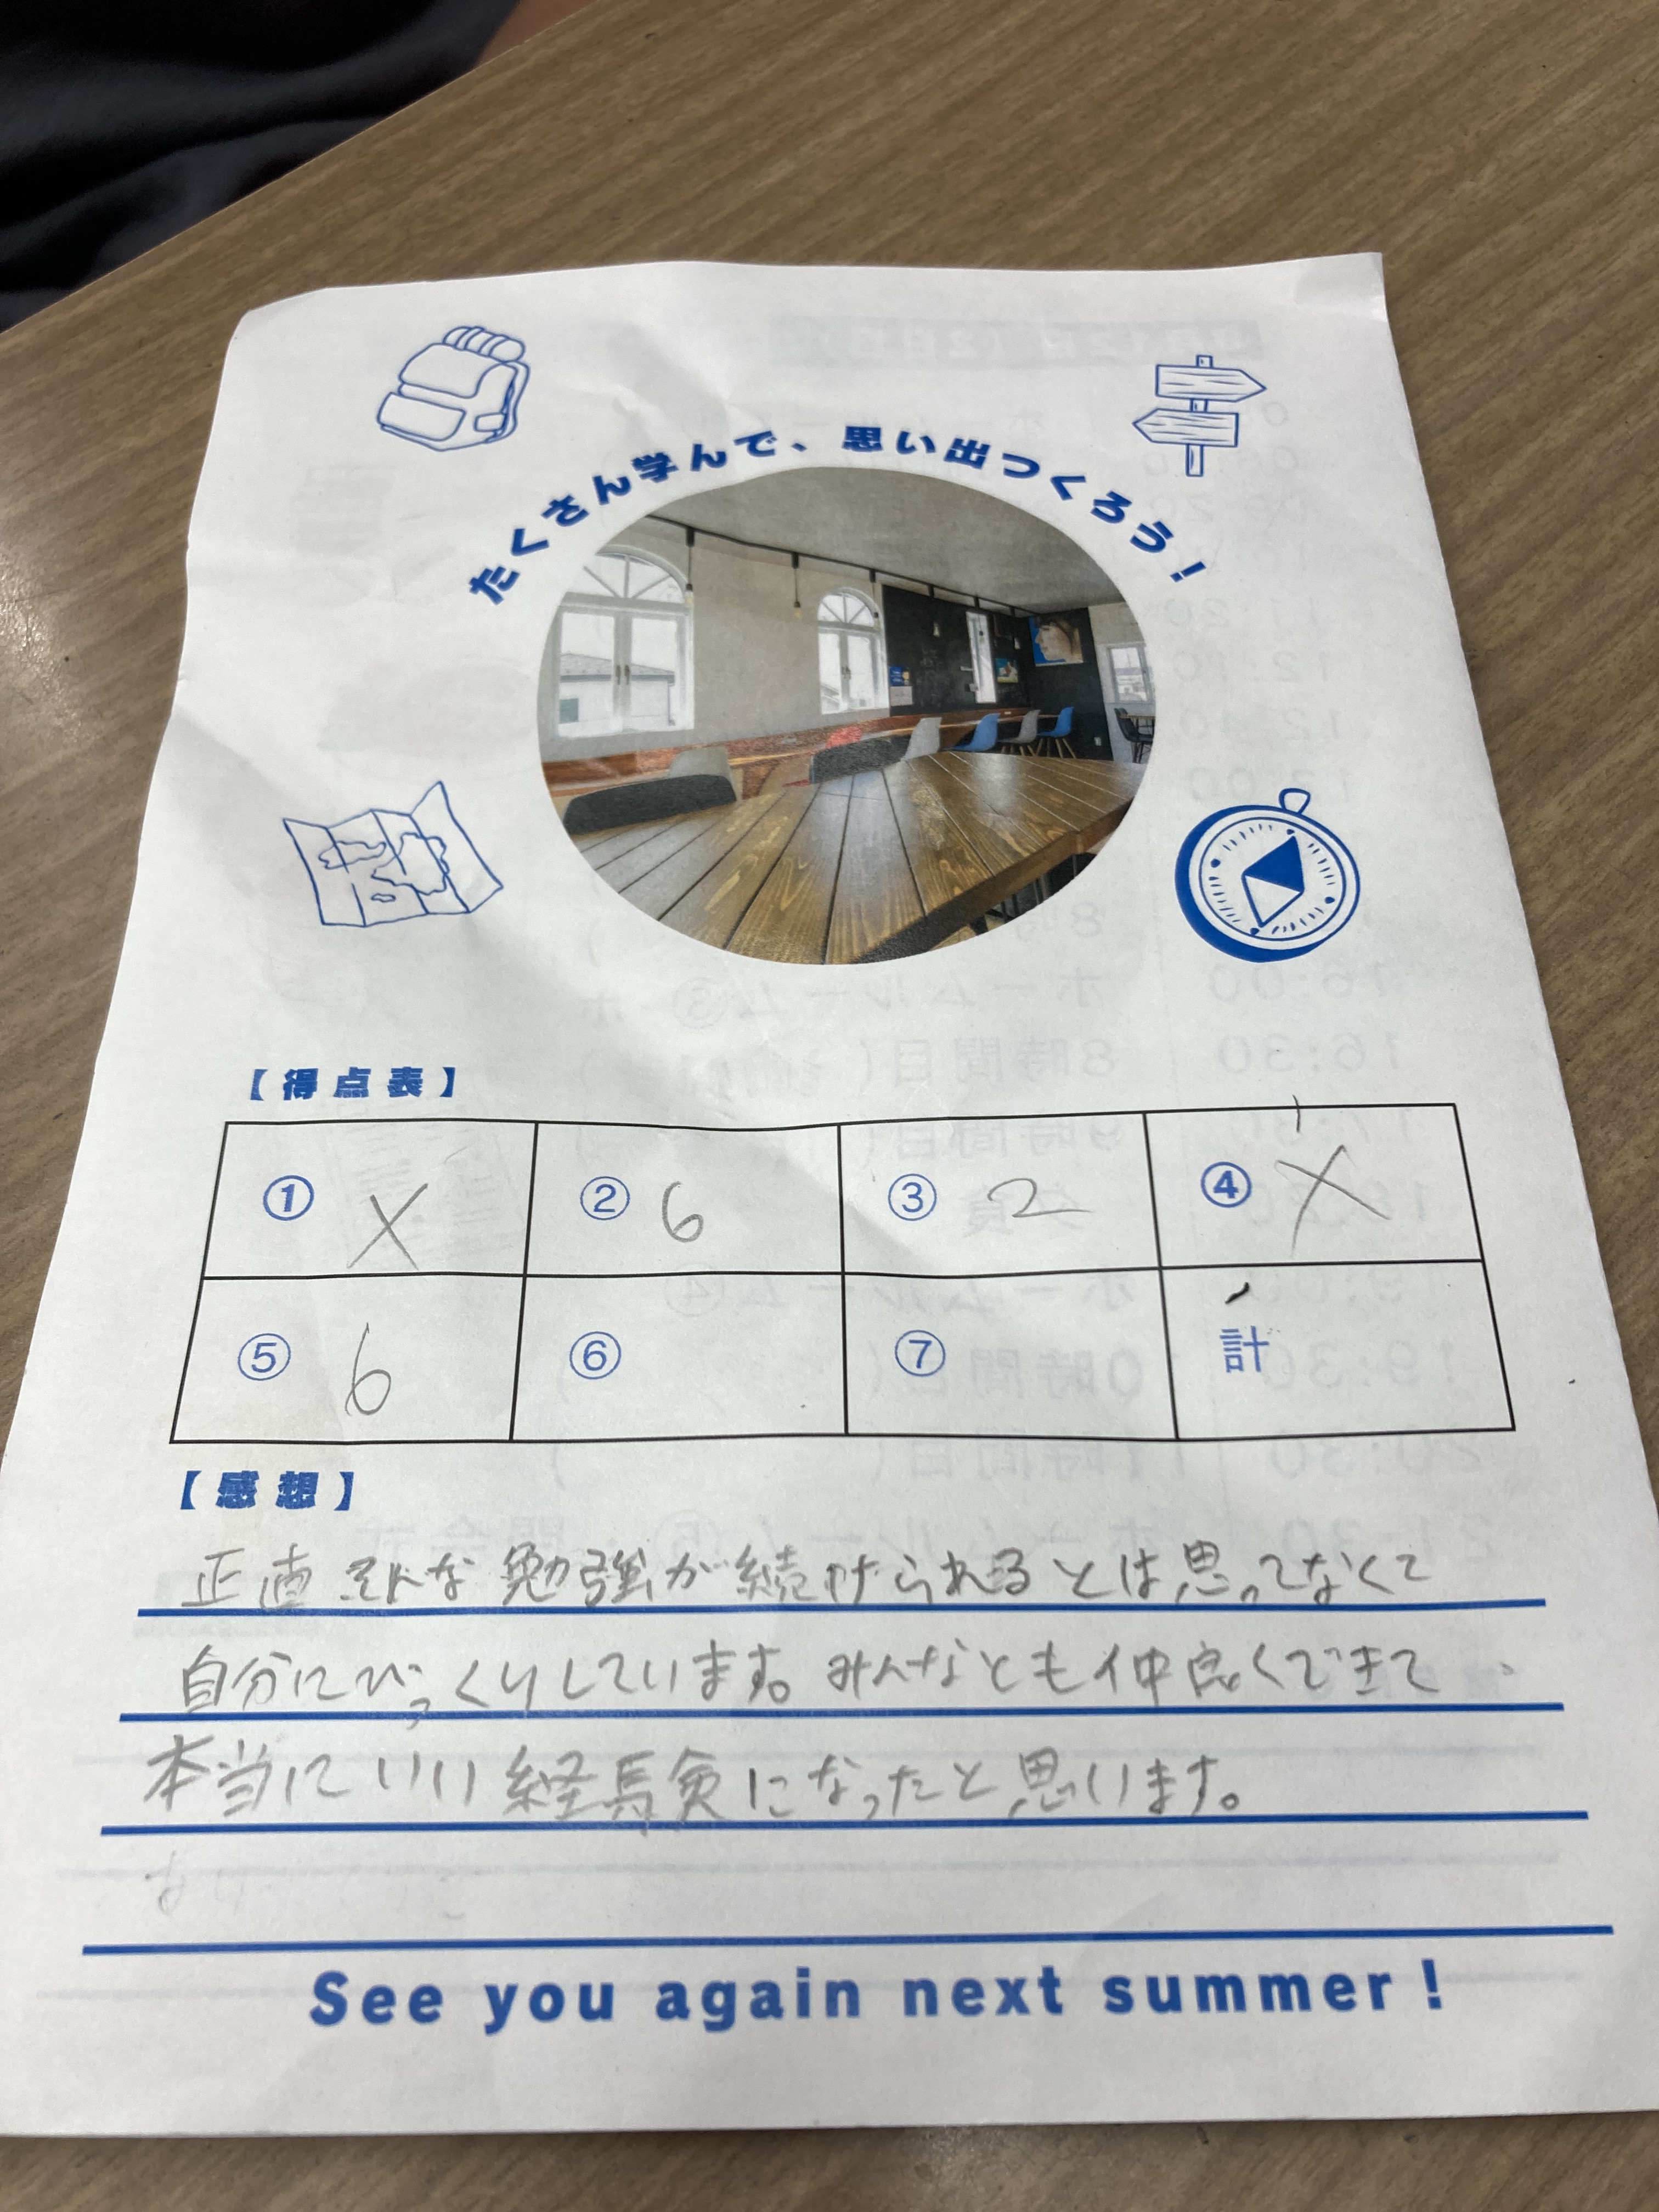 たくさん学んで、思い出つくろう！
【得点表】
① X ② 6 ③ 2 ④ X
⑤ 6 ⑥ ⑦ 計
【感想】
正直そんな勉強が続けられるとは思ってなくて
自分にびっくりしています。みんなとも仲良くできて
本当にいい経験になったと思います。
See you again next summer!